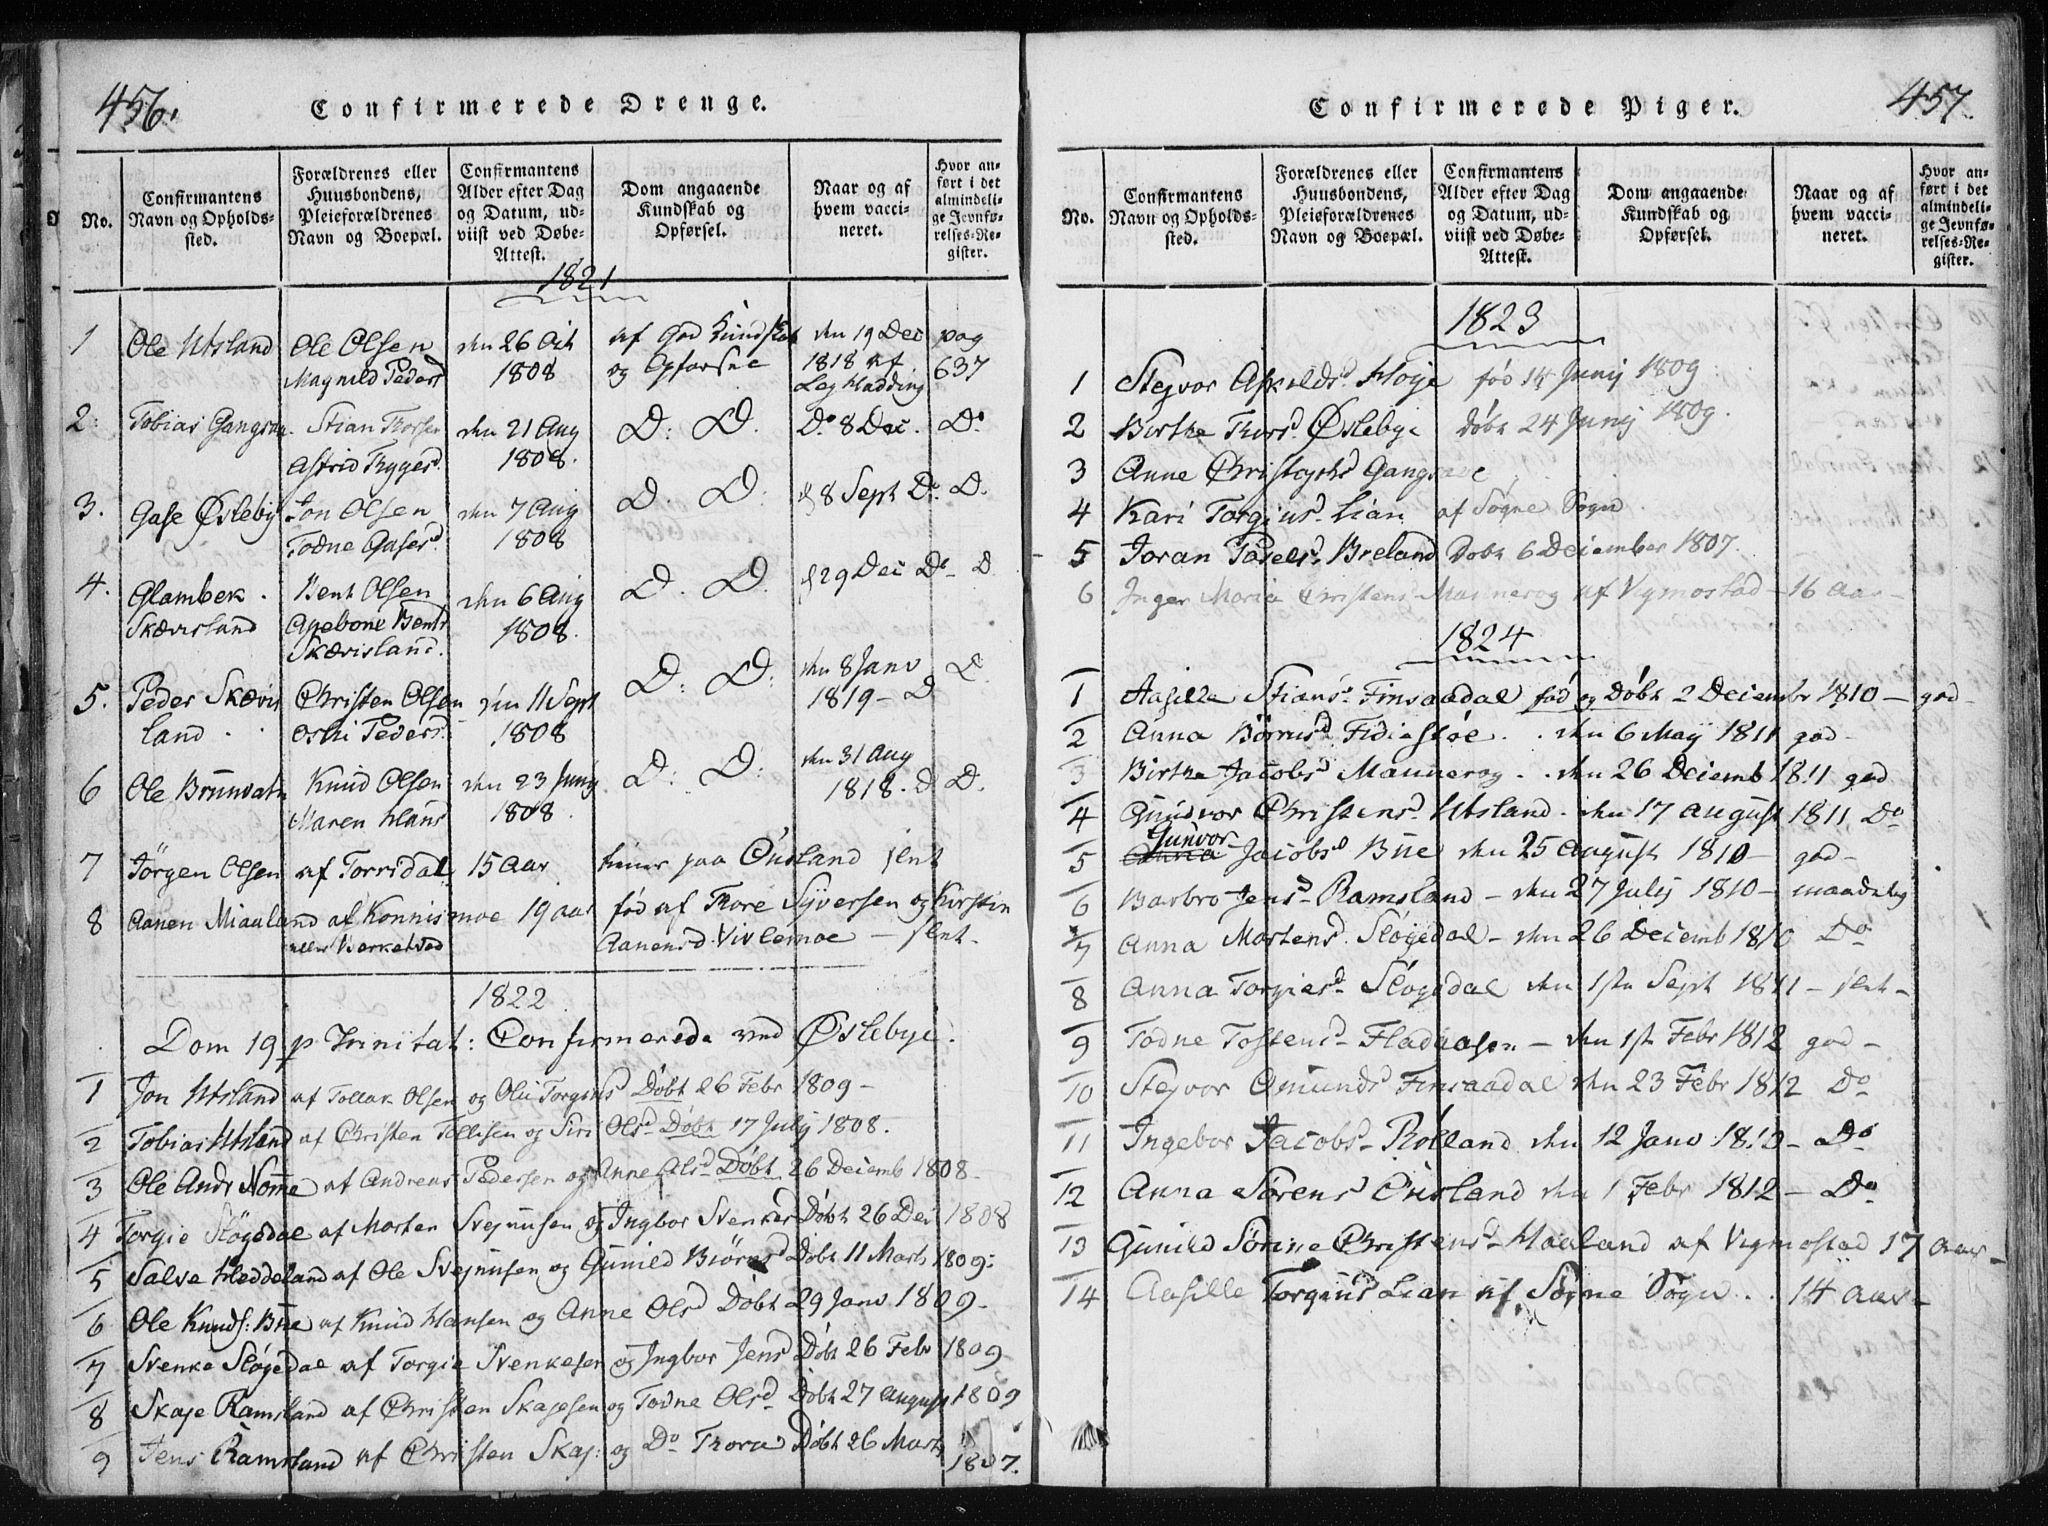 456.
Confirmerede Drenge.
No.
Confirmantens Navn og Opholdssted.
Forældrenes eller Huusbondens, Pleieforældrenes Navn og Boepæl.
Confirmantens Alder efter Dag og Datum, udviist ved Døbe-Attest.
Dom angaaende Kundskab og Opførsel.
Naar og af hvem vaccineret.
Hvor anført i det almindelige Jevnførelses-Register.
1821
1 Ole Utsland Ole Olsen den 26 Oct af God Kundskab den 19 Dec pag
Magnild Peders 1808 og Opførsel 1818 af 637
2: Tobias Stian den 21 Aug D: D. Do 8 Dec. Do
Astrid Trygesd. 1808.
3. Gase Øslebÿ Jon Olsen den 7 Aug D. D. d 8 Sept Do. D.
Todne Gasersd. 1808
4. Glambek Bent Olsen den 6 Aug D. D. d 29 Dec Do D
Skævisland Bentsd 1808.
Skævisland.
5. Peder Skævis Christen Olsen den 11 Sept D: D: den 8 Janv D.
land Peders 1808 1819 - D
6 Ole Brunvatn Knud Olsen den 23 Junÿ D: D: den 31 Aug
Maren Hans 1808. 1818. D D.
7 Jörgen Olsen af Torridal 15 Aar paa Øusland slet
8 Aanen Miauland af Konnismoe 19 aar fød af Thore Syversen og Kirstin
Aanensd. Vivlemoe - slet -
1822.
Dom 19 p Trinitat: Confirmerede ved Øslebye.
1 Jon Utsland af Tollak Olsen og Torgiusd Døbt 26 Febr 1809 -
2 Tobias Utsland af Christen Tollisen og Siri Olsd Døbt 17 Julÿ 1808.
3 Ole Andr Nome af Andreas Pedersen og Anne Olsd Døbt 26 Decemb 1808 -
4 Torgie Slögedal af Morten Svejnusen og Ingbor Svenkes Døbt 26 Dec 1808
5 Salve Heddeland af Ole Svejnusen og Gunild Biörnsd Døbt 11 Marts 1809:
6 Ole Knuds: Bue af Knud Hansen og Anne Olsd Døbt 29 Janv 1809 -
7 Svenke Slögedal af Torgie Svenkesen og Ingbor Jensd Døbt 26 Febr 1809
8 Skaje Ramsland af Christen Skajesen og Todne Olsd Døbt 27 August 1809
9 Jens Ramsland af Christen Skaj: og Do Thora Døbt 26 Marts 1807.
457.
Confirmerede Piger.
No.
Confirmantens Navn og Opholdssted.
Forældrenes eller Huusbondens, Pleieforældrenes Navn og Boepæl.
Confirmantens Alder efter Dag og Datum, udviist ved Døbe-Attest.
Dom angaaende Kundskab og Opførsel.
Naar og af hvem vaccineret.
Hvor anført i det almindelige Jevnførelses-Register.
1823
1 Stejvor Askildsd. Höje fød 14 Junij 1809
2 Birthe Thorsd. Øslebye døbt 24 Junij 1809.
3 Anne
4 Kari Torgiusd. Lian af Søgne Sogn
5 Joran Breland Døbt 6 December 1807.
6 Inger Maria Christens Mannerog af Vigmostad - 16 Aar -
1824
1 Aasille Stiansd Finsaadal fød og Døbt 2 Decembr 1810 - god -
2 Anna . . den 6 Maÿ 1811 god -
3 Birthe Jacobsd Mannerog . . den 26 Decemb 1811 god
4 Gundvor Christensd Utsland . den 17 August 1811 Do
Gunvor
5 Anna Jacobsd Bue den 25 August 1810 - god -
6 Barbro Jensd Ramsland - den 27 Julij 1810 - maadelig
7 Anna Mortensd. Slögedal - den 26 Decemb 1810 Do
8 Anna Torgiesd Slögedal den 1ste Sept 1811 - slet -
9 Todne Tostensd - Fladaasen - den 1ste Febr 1812 god -
10 Stejvor Omundsd Finsaadal den 23 Febr 1812 Do
11 Ingebor Jacobsd Rölland den 12 Janv 1810 - Do
12 Anna Sörensd Øusland den 1 Febr 1812 - Do
13 Gunild Sörine Christensd Haaland af Vigmostad 17 aar -
14 Aasille Torgiusd Lian af Søgne Sogn . . 14 aar -